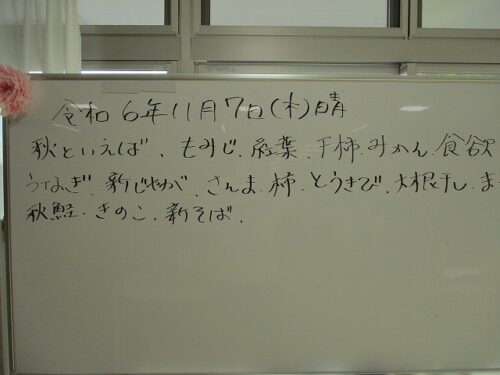 令和6年11月7日(木)晴
秋といえば、もみじ、落葉、干柿、みかん、食欲
うなぎ、新じゃが、さんま、柿、とうきび、大根干し、ま
秋鮭、きのこ、新そば、